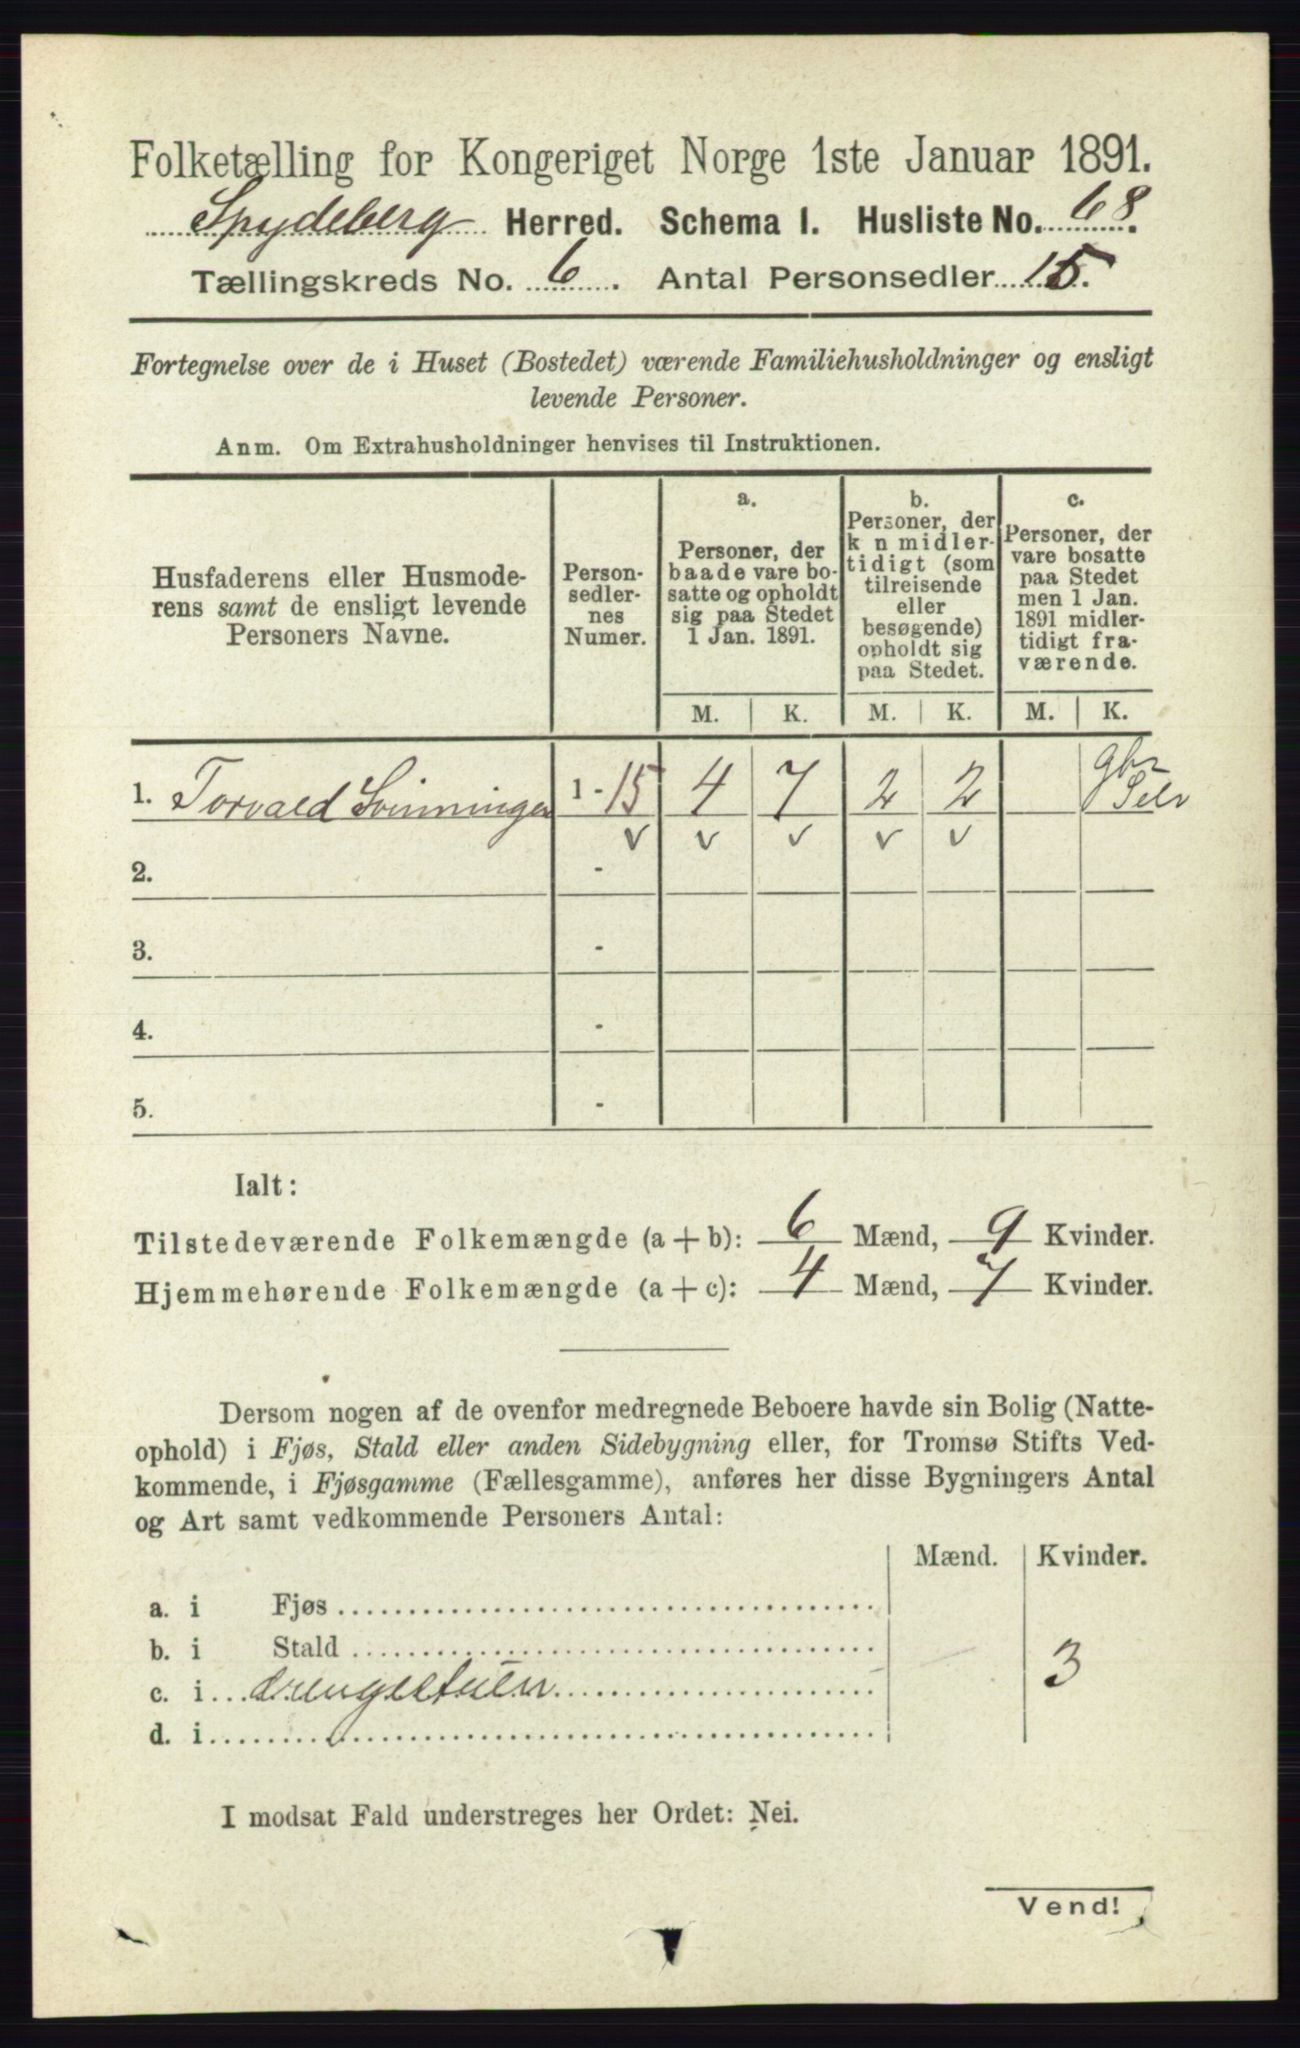 Folketælling for Kongeriget Norge 1ste Januar 1891.
Spydeberg Herred. Schema I. Husliste No. 68.
Tællingskreds No. 6. Antal Personsedler 15.
Fortegnelse over de i Huset (Bostedet) værende Familiehusholdninger og ensligt
levende Personer.
Anm. Om Extrahusholdninger henvises til Instruktionen.
Husfaderens eller Husmode-
rens samt de ensligt levende
Personers Navne.
Person-
sedler-
nes
Numer.
a.
Personer, der
baade vare bo-
satte og opholdt
sig paa Stedet
1 Jan. 1891.
b.
Personer, der
k n midler-
tidigt (som
tilreisende
eller
besøgende)
opholdt sig
paa Stedet.
c.
Personer, der
vare bosatte
paa Stedet
men 1 Jan.
1891 midler-
tidigt fra-
værende.
M. K. M. K. M. K.
1. Torvald Svinninger 1 - 15 4 7 2 2 gbr
v v v v v
2. -
3. -
4. -
5. -
Ialt:
Tilstedeværende Folkemængde (a + b): 6 Mænd, 9 Kvinder.
Hjemmehørende Folkemængde (a + c): 4 Mænd, 7 Kvinder.
Dersom nogen af de ovenfor medregnede Beboere havde sin Bolig (Natte-
ophold) i Fjøs, Stald eller anden Sidebygning eller, for Tromsø Stifts Ved-
kommende, i Fjøsgamme (Fællesgamme), anføres her disse Bygningers Antal
og Art samt vedkommende Personers Antal:
Mænd. Kvinder.
a. i Fjøs
b. i Stald
c. i drengestuen 3
d. i
I modsat Fald understreges her Ordet: Nei.
Vend!